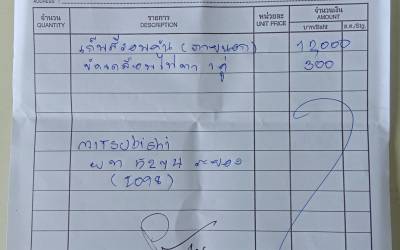 ADDRESS
จำนวน รายการ หน่วยละ จำนวนเงิน
QUANTITY DESCRIPTION UNIT PRICE AMOUNT
บาท/Baht ส.ต./Stg.
เก็บสีรอบคัน (ภายนอก) 12,000
ขัดเคลือบไฟตา 1 คู่ 300
MITSUBISHI
ระยอง